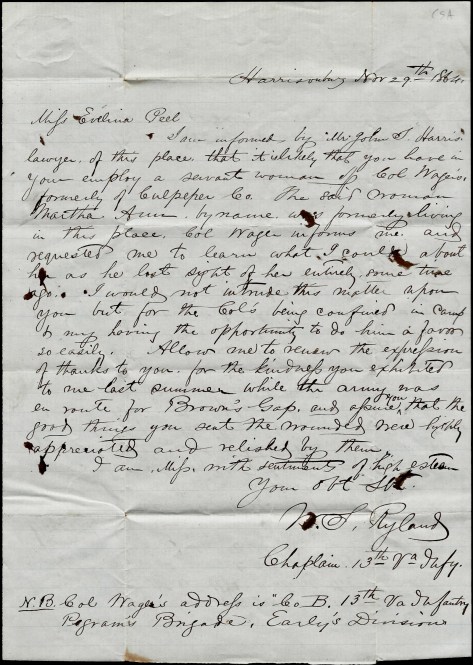 Harrisonburg Nov 29th 1864.
Miss Evelina Peel
I am informed by Mr. John S. Harris
lawyer of this place that it is likely that you have in
your employ a servant woman of Col Wager's,
formerly of Culpeper Co. The said woman
Martha Ann by name was formerly living
in this place. Col Wager informs me and
requested me to learn what I could about
her as he lost sight of her entirely some time
ago. I would not intrude this matter upon
you but for the Col's being confined in camp
& my having the opportunity to do him a favor
so easily. Allow me to renew the expression
of thanks to you for the kindness you exhibited
to me last summer while the army was
en route for Brown's Gap, and assure you that the
good things you sent the wounded were highly
appreciated and relished by them.
I am, Miss, with sentiments of high esteem
Your Obt Svt.
W. S. Ryland
Chaplain 13th Va Infy.
N.B. Col Wager's address is "Co B. 13th Va Infantry
Pegram's Brigade, Early's Division